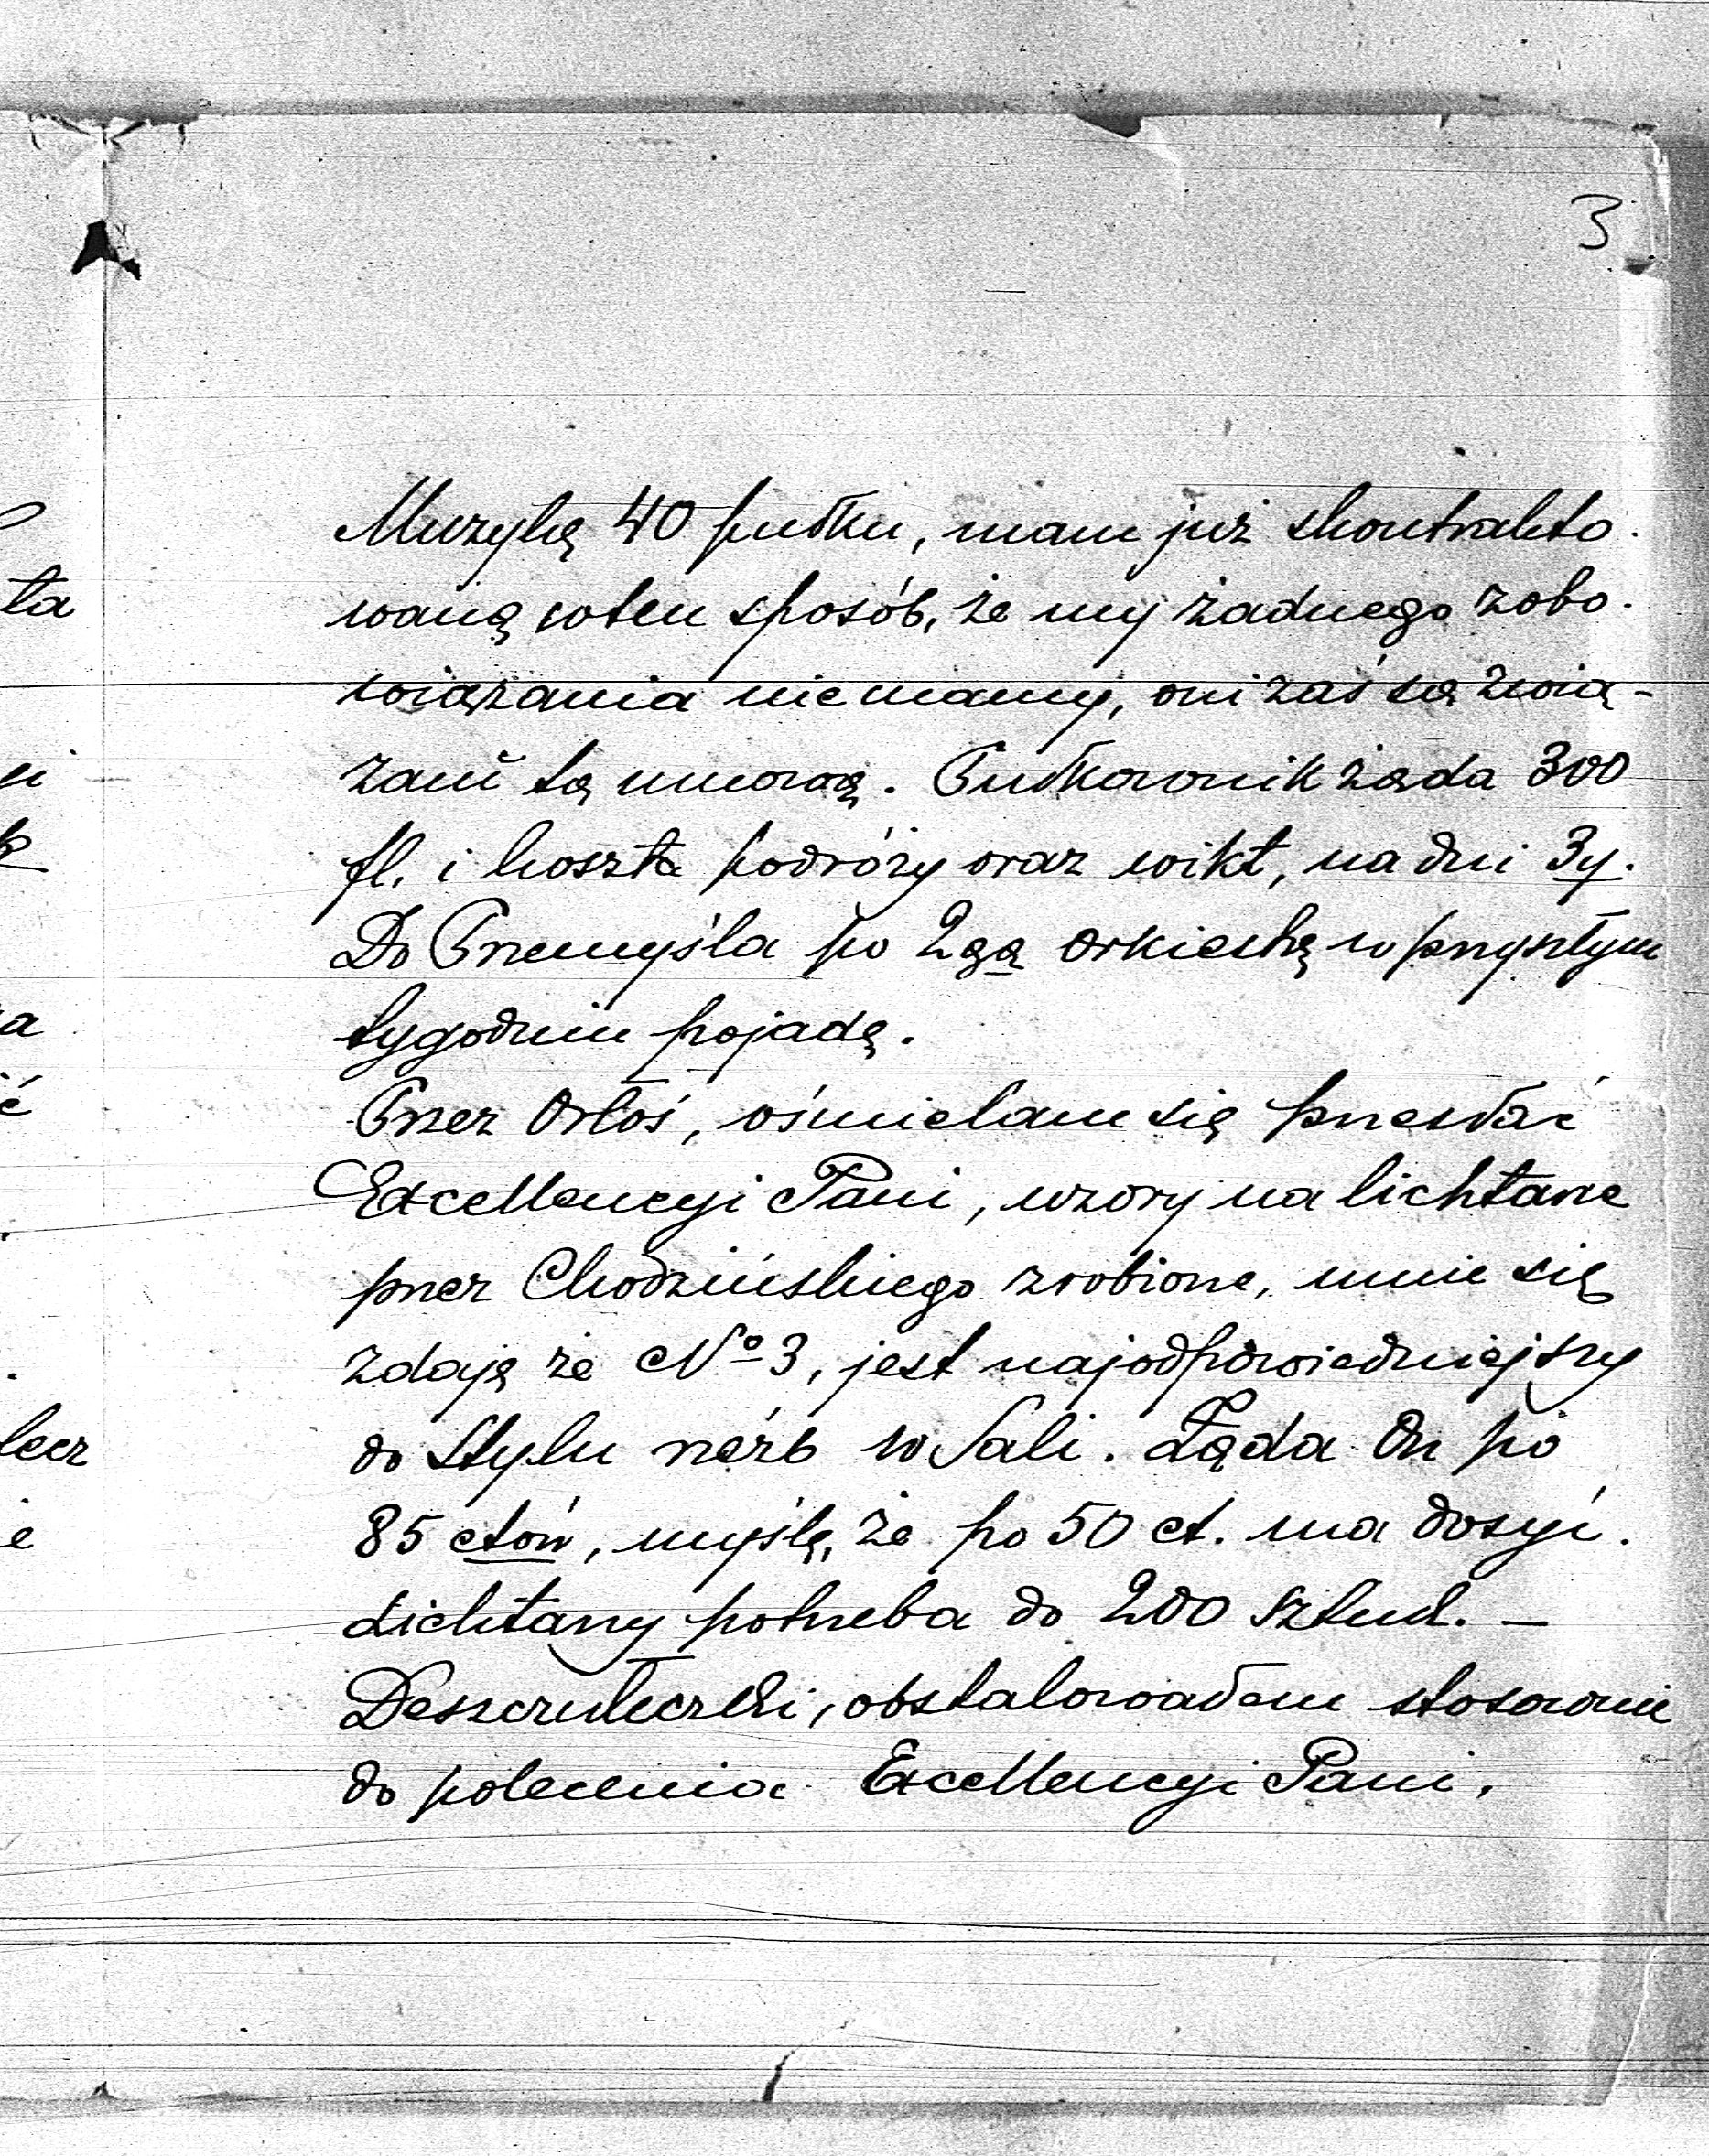 3
Muzykę 40 pułku, mam już skontrakto-
waną w ten sposób, że my żadnego zobo-
wiązania nie mamy, oni zaś są zwią-
zani tą umową. Pułkownik żąda 300
fl. i koszta podróży oraz wikt, na dni 3y.
Do Przemyśla po 2gą orkiestrę w przyszłym
tygodniu pojadę.
Przez Orłoś, ośmielam się przesłać
Excellencyi Pani, wzory na lichtarze
przez Chodzińskiego zrobione, mnie się
zdaje że No 3, jest najodpowiedniejszy
do Stylu rzeźb w Sali. Żąda On po
85 ctów, myślę, że po 50 ct. ma dosyć.
Lichtarzy potrzeba do 200 sztuk. —
Deszczułeczki, obstalowałem stosownie
do polecenia Excellencyi Pani.
ta
lecz